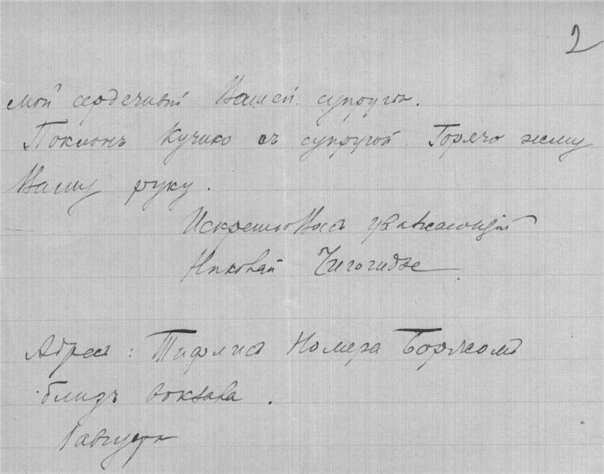 2
мой сердечный Вашей супруги.
Поклонъ Кучико съ супругой. Горячо жму
Вашу руку.
Искренно Васъ уважающій
Николай Чигогидзе
Адресъ: Тифлисъ Номера Боржомъ
близъ вокзала.
1 августа